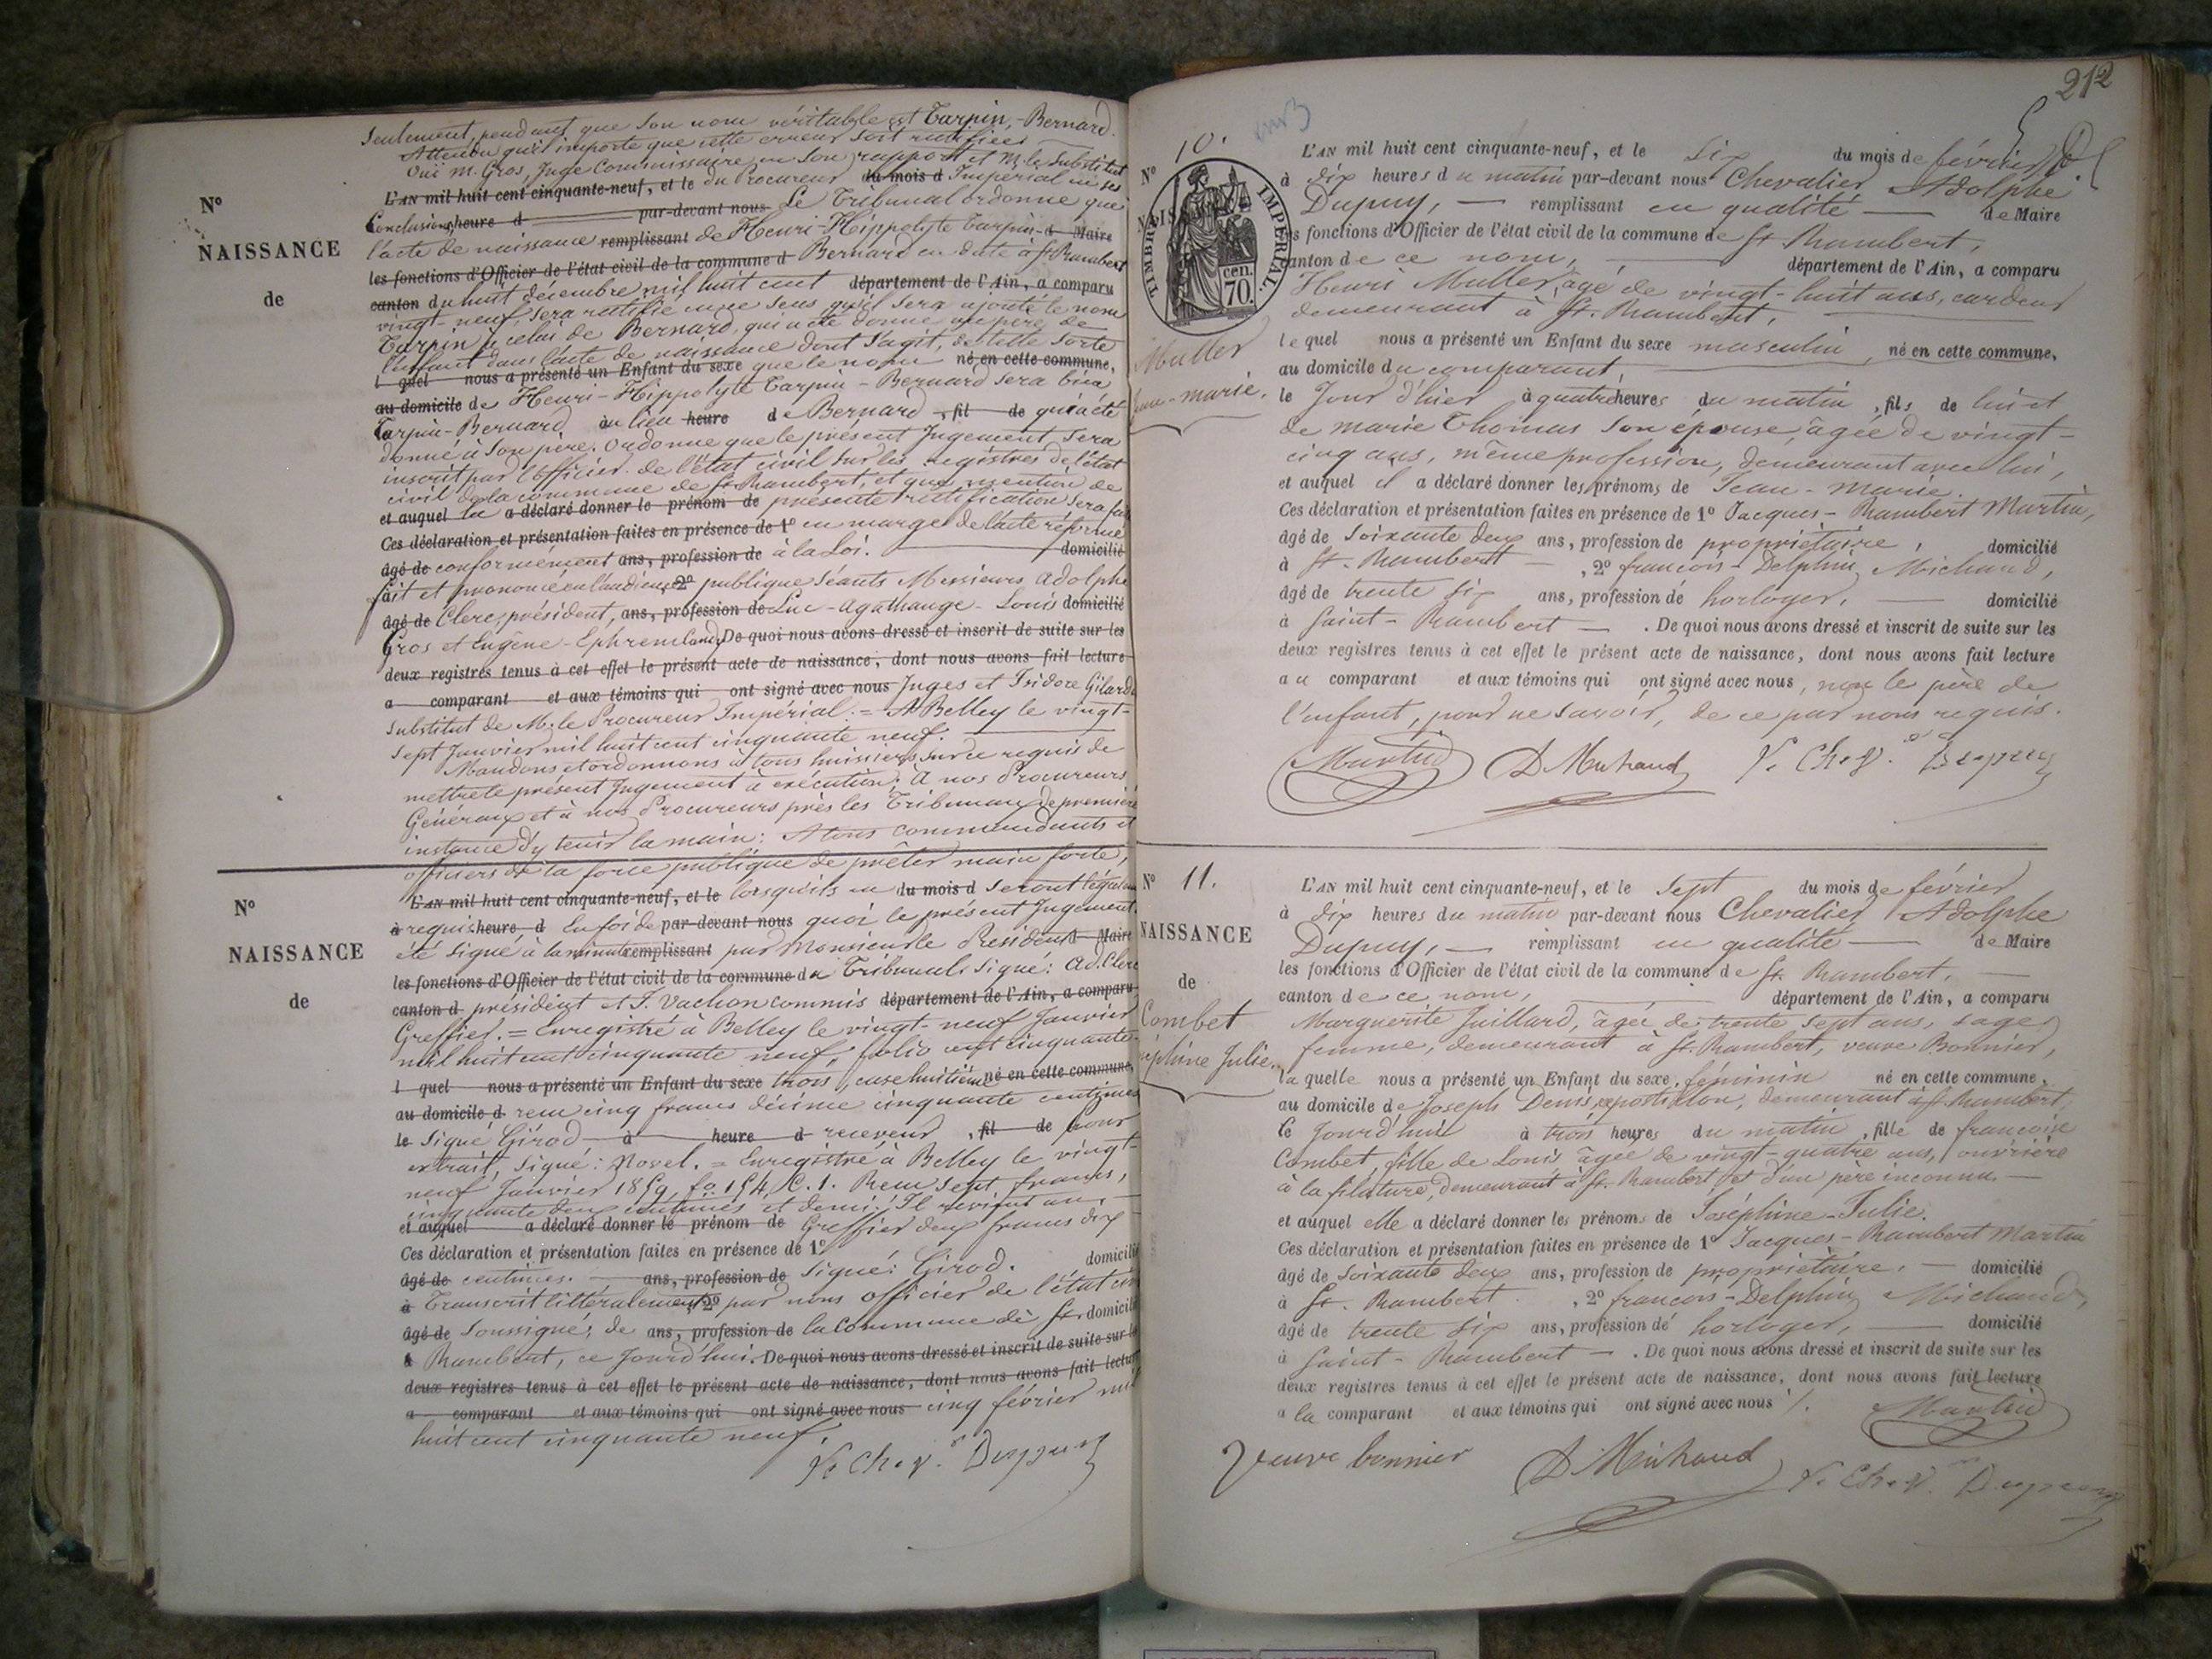 Seulement, pendant que son nom véritable est Tarpin-Bernard.
Attendu qu'il importe que cette erreur soit rectifiée
Ouï M. Gros, Juge Commissaire en son rapport et M. le Substitut
L'AN mil huit cent cinquante-neuf, et le du Procureur du mois d Impérial en ses
Conclusions heure d par-devant nous Le Tribunal ordonne que
N°
l'acte de naissance remplissant de Henri-Hippolyte Tarpin- d Maire
NAISSANCE
les fonctions d'Officier de l'état civil de la commune d Bernard en date à St Rambert
de
canton du huit décembre mil huit cent département de l'Ain, a comparu
vingt-neuf, sera rectifié en ce sens qu'il sera ajouté le nom
Tarpin à celui de Bernard, qui a été donné au père de
l'enfant dans l'acte de naissance dont s'agit, de telle sorte
l quel nous a présenté un Enfant du sexe que le nom né en cette commune,
au domicile de Henri-Hippolyte Tarpin-Bernard sera bien
Tarpin-Bernard au lieu heure de Bernard , fil de qui a été
donné à son père. Ordonne que le présent Jugement sera
inscrit par l'officier de l'état civil sur les registres de l'état
civil de la commune de St Rambert, et que mention de
et auquel la a déclaré donner le prénom de présente rectification sera
Ces déclaration et présentation faites en présence de 1° en marge de l'acte réformé
âgé de conformément ans, profession de à la Loi. domicilié
fait et prononcé en l'audience 2° publique séants Messieurs Adolphe
âgé de Clerc, président, ans, profession de Luc-Agathange-Louis domicilié
Gros et Eugène-Ephrem De quoi nous avons dressé et inscrit de suite sur les
deux registres tenus à cet effet le présent acte de naissance, dont nous avons fait lecture
a comparant et aux témoins qui ont signé avec nous Juges et Isidore Gilardi
Substitut de M. le Procureur Impérial. = A Belley le vingt-
sept Janvier mil huit cent cinquante neuf.
Mandons et ordonnons à tous huissiers sur ce requis de
mettre le présent Jugement à exécution; à nos Procureurs
Généraux et à nos Procureurs près les Tribunaux de première
instance d'y tenir la main: A tous commandants et
officiers de la force publique de prêter main forte,
N°
L'AN mil huit cent cinquante-neuf, et le lorsqu'ils en du mois d seront
à requis heure d En foi de par-devant nous quoi le présent Jugement
NAISSANCE
été signé à la minute remplissant par Monsieur le Président d Maire
les fonctions d'Officier de l'état civil de la commune du Tribunal. Signé: Ad. Clerc
de
canton d président et F. Vachon commis département de l'Ain, a comparu
Greffier. = Enregistré à Belley le vingt-neuf Janvier
mil huit cent cinquante neuf, folio cent cinquante
l quel nous a présenté un Enfant du sexe trois, case huitième né en cette commune,
au domicile d reçu cinq francs décime cinquante centimes
le Signé Girod à heure d receveur , fil de pour
extrait, signé: Novel. = Enregistré à Belley le vingt-
neuf Janvier 1859, fo 154, C. 1. Reçu sept francs,
cinquante deux centimes et demi. Il revient au
et auquel a déclaré donner le prénom de Greffier deux francs dix
Ces déclaration et présentation faites en présence de 1°
âgé de centimes. ans, profession de Signé: Girod. domicilié
à Transcrit littéralement , 2° par nous officier de l'état
âgé de soussigné, de ans, profession de la commune de St domicilié
à Rambert, ce jourd'hui. De quoi nous avons dressé et inscrit de suite sur les
deux registres tenus à cet effet le présent acte de naissance, dont nous avons fait lecture
a comparant et aux témoins qui ont signé avec nous cinq février mil
huit cent cinquante neuf.
Dupuy
212
N° 10.
NAISSANCE
TIMBRE IMPERIAL.
cen.
70.
Muller
marie.
L'AN mil huit cent cinquante-neuf, et le six du mois de février
à dix heures du matin par-devant nous Chevalier Adolphe
Dupuy, — remplissant en qualité — de Maire
les fonctions d'Officier de l'état civil de la commune de St. Rambert,
canton de ce nom, département de l'Ain, a comparu
Henri Muller, âgé de vingt-huit ans, cardeur
demeurant à St. Rambert,
lequel nous a présenté un Enfant du sexe masculin, né en cette commune,
au domicile du comparant
le Jour d'hier à quatre heures du matin, fils de lui et
de marie Thomas son épouse, âgée de vingt-
cinq ans, même profession, demeurant avec lui,
et auquel il a déclaré donner les prénoms de Jean-Marie.
Ces déclaration et présentation faites en présence de 1° Jacques-Rambert Martin,
âgé de soixante deux ans, profession de propriétaire, domicilié
à St. Rambert — , 2° françois-Delphin Michaud,
âgé de trente six ans, profession de horloger, — domicilié
à Saint-Rambert — . De quoi nous avons dressé et inscrit de suite sur les
deux registres tenus à cet effet le présent acte de naissance, dont nous avons fait lecture
au comparant et aux témoins qui ont signé avec nous, non le père de
l'enfant, pour ne savoir, de ce par nous requis.
Martin D Michaud Dupuy
N° 11.
NAISSANCE
de
Combet
Julie.
L'AN mil huit cent cinquante-neuf, et le sept du mois de février
à dix heures du matin par-devant nous Chevalier Adolphe
Dupuy, — remplissant en qualité — de Maire
les fonctions d'Officier de l'état civil de la commune de St. Rambert,
canton de ce nom, département de l'Ain, a comparu
Marguerite Juillard, âgée de trente sept ans, sage
femme, demeurant à St. Rambert, veuve Bonnier,
la quelle nous a présenté un Enfant du sexe féminin né en cette commune,
au domicile de Joseph Denis, postillon, demeurant à St Rambert,
Ce Jourd'hui à trois heures du matin, fille de françoise
Combet, fille de Louis âgée de vingt-quatre ans, ouvrière
à la filature, demeurant à St. Rambert et d'un père inconnu. —
et auquel elle a déclaré donner les prénoms de Joséphine-Julie.
Ces déclaration et présentation faites en présence de 1° Jacques-Rambert Martin
âgé de soixante deux ans, profession de propriétaire. — domicilié
à St. Rambert , 2° françois-Delphin Michaud,
âgé de trente six ans, profession de horloger, — domicilié
à Saint-Rambert — . De quoi nous avons dressé et inscrit de suite sur les
deux registres tenus à cet effet le présent acte de naissance, dont nous avons fait lecture
a la comparant et aux témoins qui ont signé avec nous /. Martin
Veuve bonnier D Michaud Dupuy